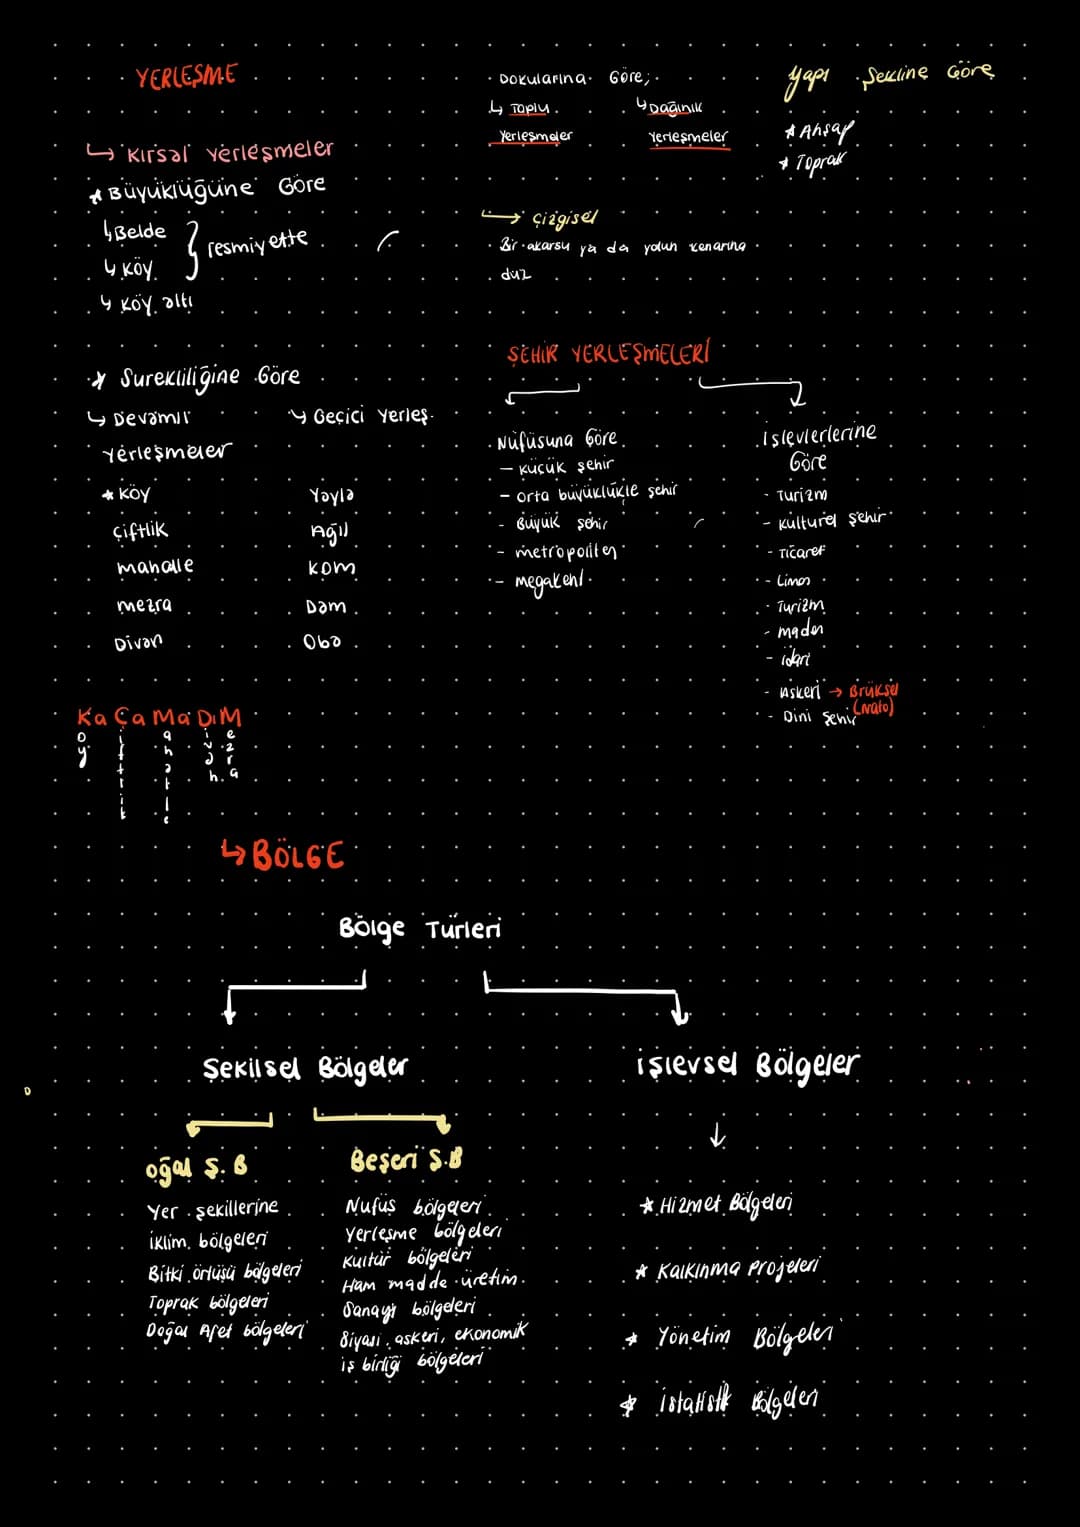 YERLEŞME
↳ Kırsal Yerleşmeler
* Büyüklüğüne Göre
↳ Belde
↳ Köy
} resmiyette
↳ Köy altı
* Surekliliğine Göre
↳ Devamlı Yerleşmeler
* Köy
Çiftlik
mahalle
mezra
Divan
↳ Geçici Yerleş.
Yayla
Ağıl
Kom
Dam
Oba
Ka Ça Ma Dı M
Koy
Çiftlik
Mahalle
Divan
Mezra
Dokularına Göre;
↳ Toplu Yerleşmeler
↳ Dağınık Yerleşmeler
Yapı Şekline Göre
* Ahşap
* Toprak
→ Çizgisel
Bir akarsu ya da yolun kenarına
duz
ŞEHİR YERLEŞMELERİ
Nüfüsuna Göre
- Küçük şehir
- orta büyüklükle şehir
- Büyük şehir
- metropoliten
- megakent
işlevlerlerine
Göre
- Turizm
- Kulturel şehir
- Ticaret
- Liman
- Turizm
- maden
- idari
- Askeri → Brüksel
(Nato)
- Dini Şehir
↳ BÖLGE
Bölge Türleri
Şekilsel Bölgeler
oğal Ş.B
Yer şekillerine
İklim bölgeleri
Bitki örtüsü bölgeleri
Toprak bölgeleri
Doğal Afet bölgeleri
Beşeri Ş.B
Nufüs bölgeleri
Yerleşme bölgeleri
Kultür bölgeleri
Ham madde üretim
Sanayi bölgeleri
Siyasi, askeri, ekonomik
iş birliği bölgeleri
işlevsel Bölgeler
* Hizmet Bölgeleri
* Kalkınma Projeleri
* Yönetim Bölgeleri
* İstatistik Bölgeleri